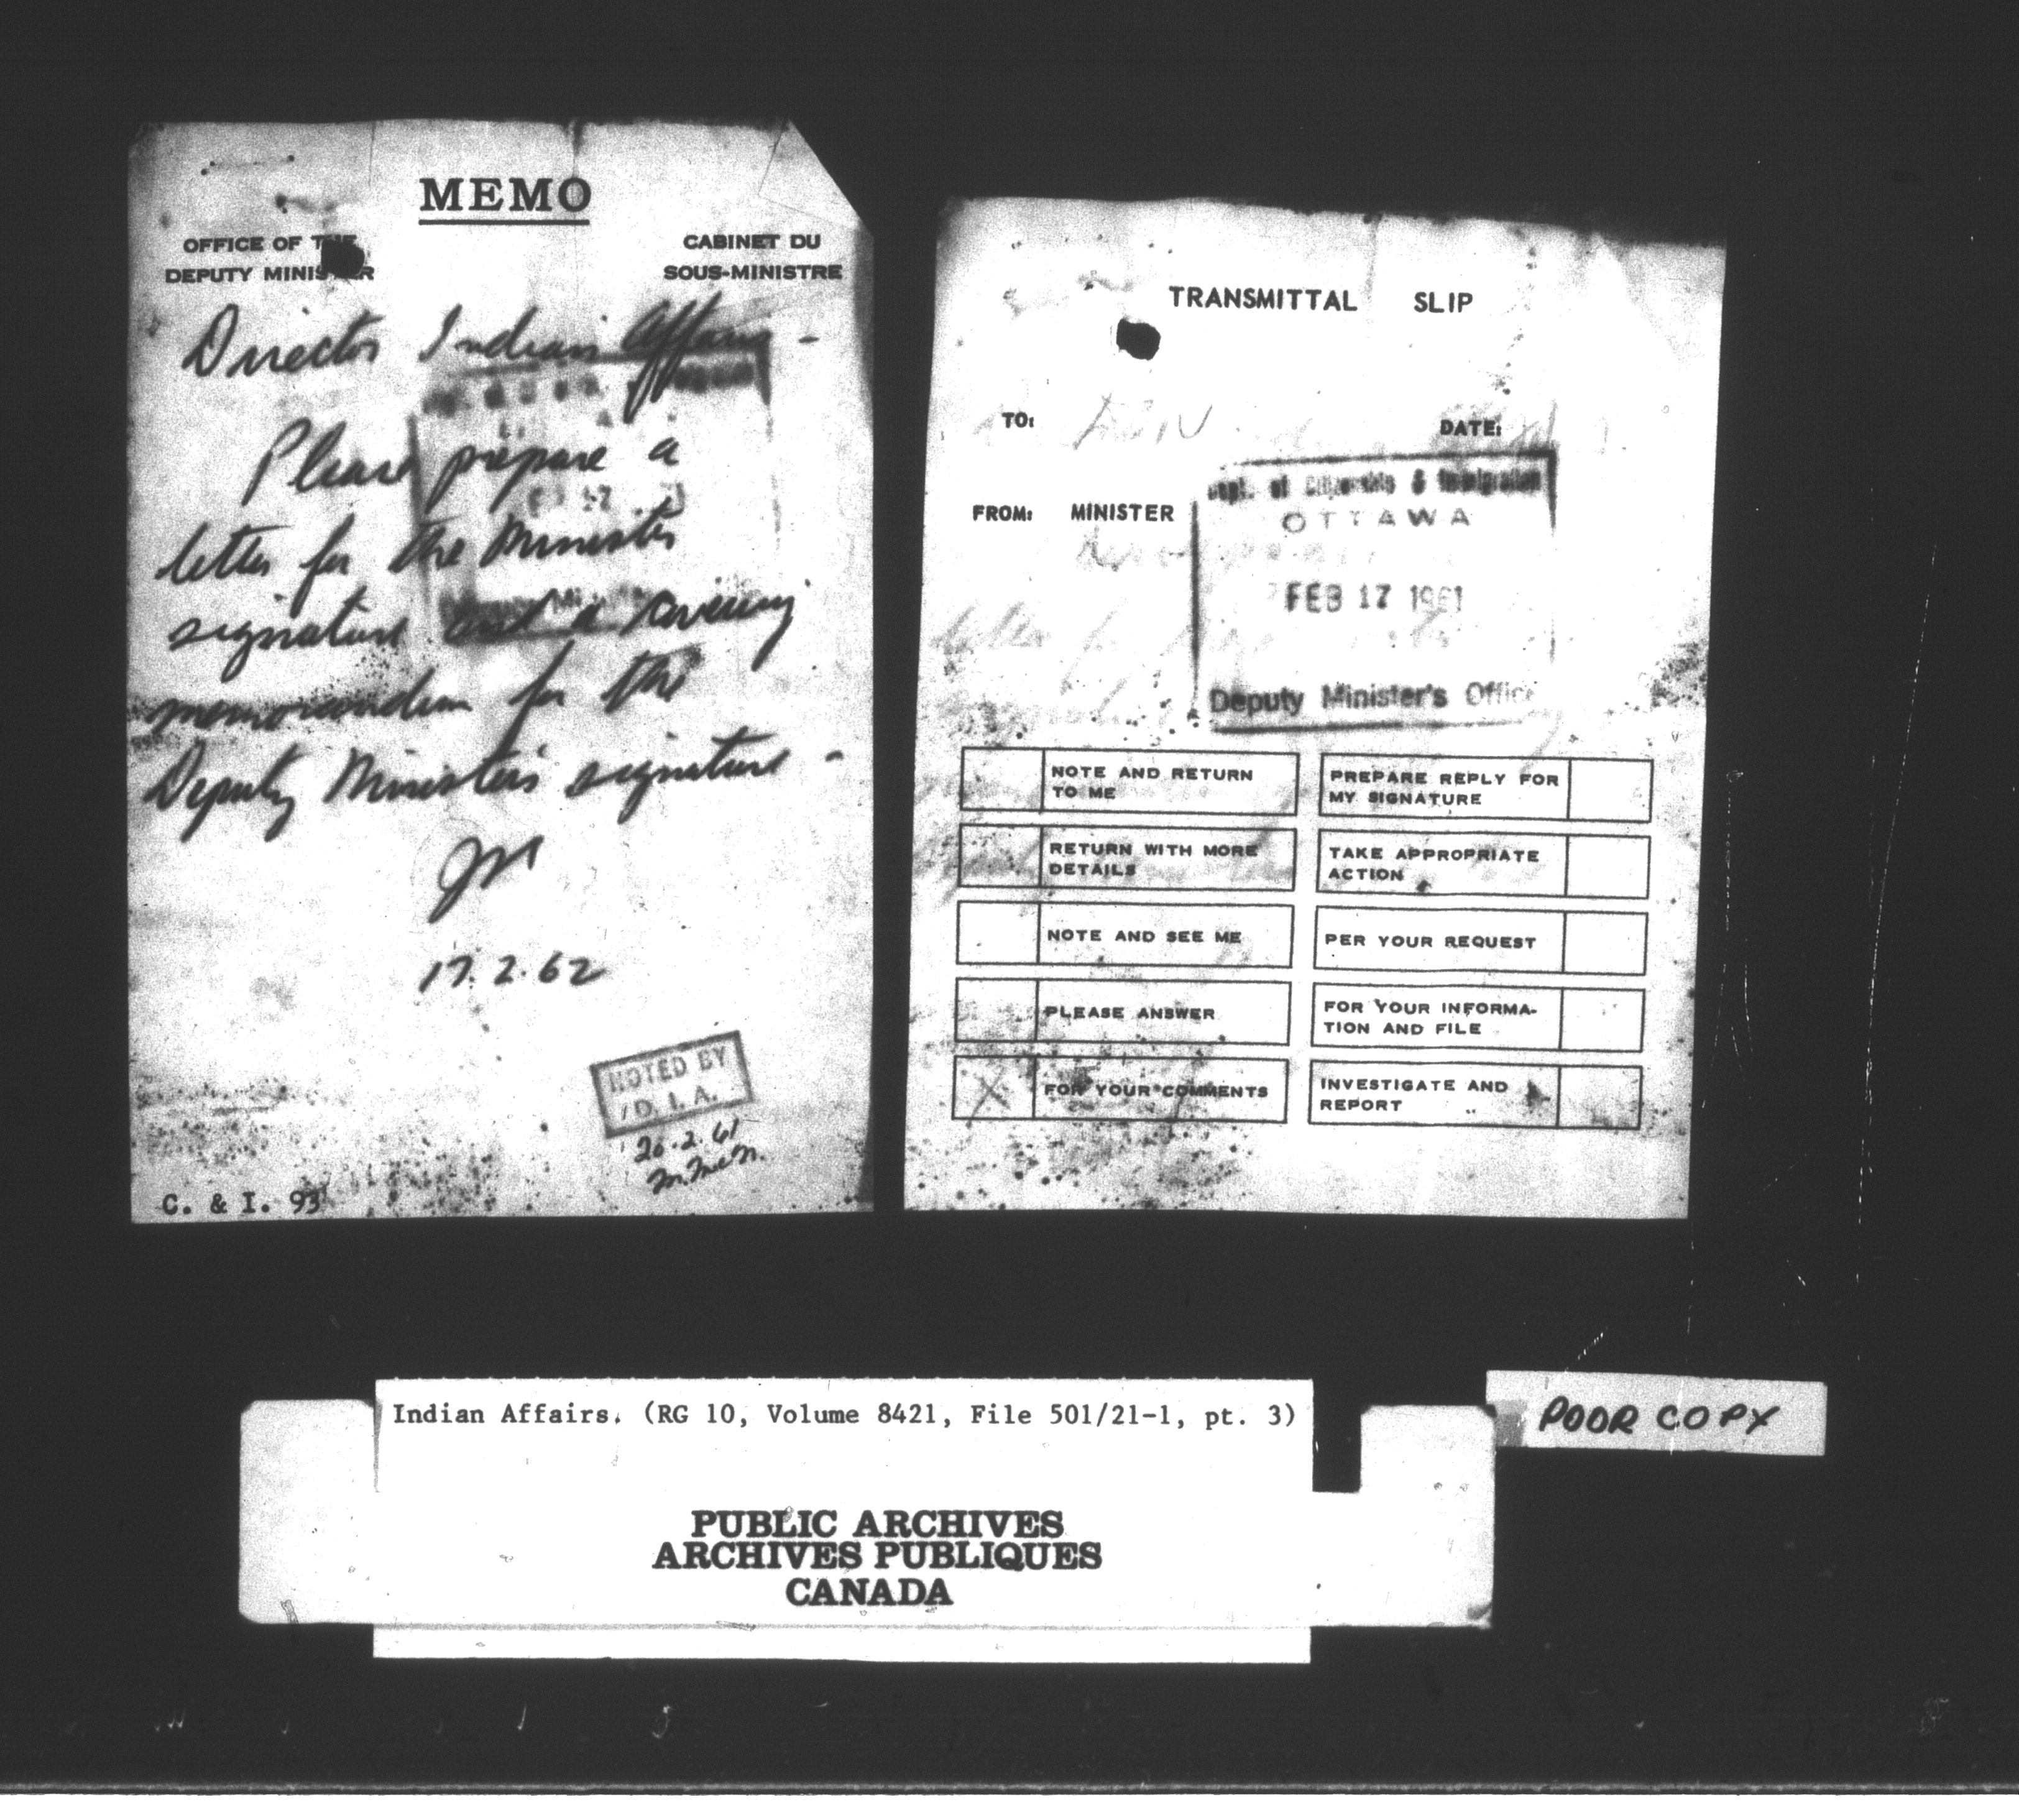 MEMO
OFFICE OF THE
DEPUTY MINISTER
CABINET DU
SOUS-MINISTRE
Director Indian Affairs -
Please prepare a
letter for the Minister's
signature and a covering
memorandum for the
Deputy Minister's signature -
17.2.62
NOTED BY
D. I. A.
20.2.61
M. McN.
C. & I. 93
TRANSMITTAL SLIP
TO:
DATE:
FROM: MINISTER
Dept. of Citizenship & Immigration
OTTAWA
FEB 17 1961
Deputy Minister's Office
NOTE AND RETURN
TO ME
PREPARE REPLY FOR
MY SIGNATURE
RETURN WITH MORE
DETAILS
TAKE APPROPRIATE
ACTION
NOTE AND SEE ME
PER YOUR REQUEST
PLEASE ANSWER
FOR YOUR INFORMA-
TION AND FILE
X FOR YOUR COMMENTS
INVESTIGATE AND
REPORT
Indian Affairs. (RG 10, Volume 8421, File 501/21-1, pt. 3)
POOR COPY
PUBLIC ARCHIVES
ARCHIVES PUBLIQUES
CANADA